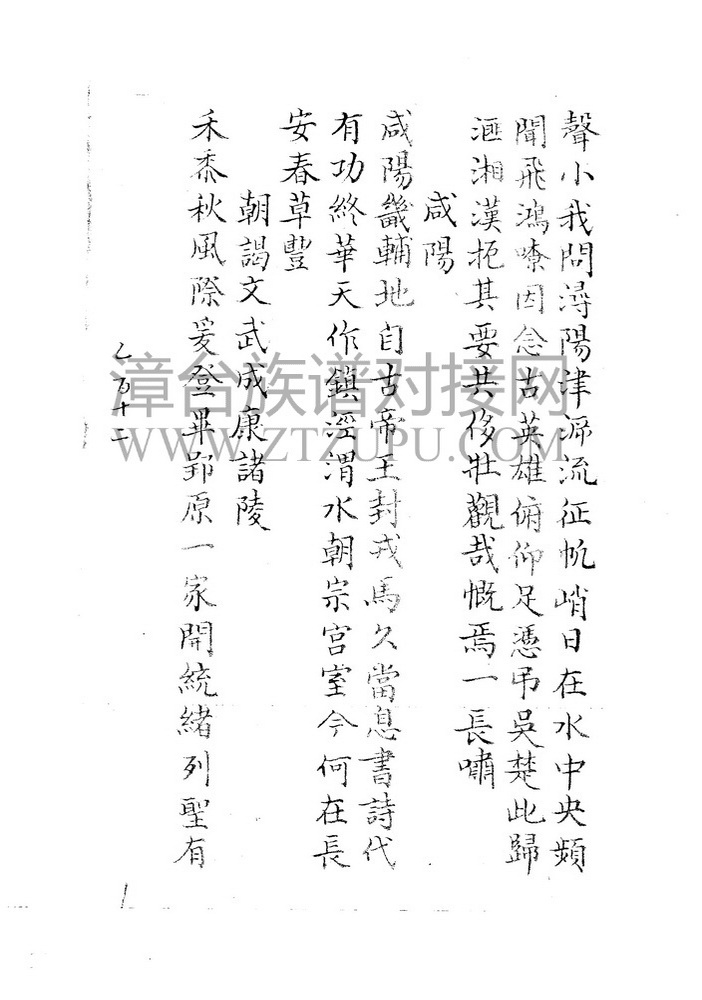 聲小我問潯陽津源流征帆峭日在水中央頻
聞飛鴻嘹因念古英雄俯仰足憑弔吳楚此歸
滙湘漢扼其要共侈壯觀哉慨焉一長嘯
咸陽
咸陽畿輔地自古帝王封戎馬久當息書詩代
有功終華天作鎮涇渭水朝宗宮室今何在長
安春草豐
朝謁文武成康諸陵
禾黍秋風際爰登畢郢原一家開統緒列聖有
乙百十二
漳台族谱对接网
WWW.ZTZUPU.COM